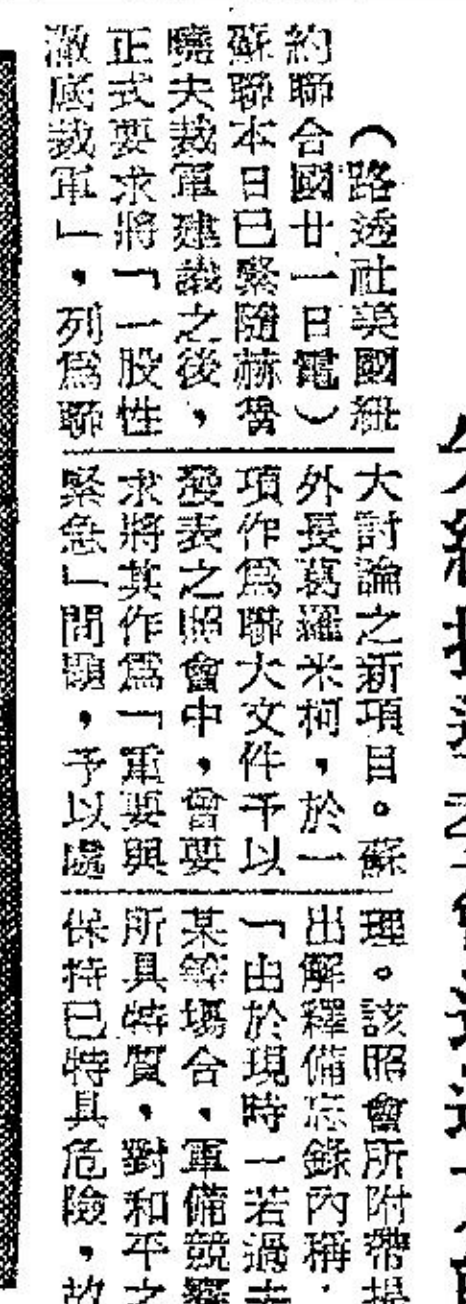 （路透社美國紐
約聯合國廿一日電）
蘇聯本日已緊隨赫魯
曉夫裁軍建議之後，
正式要求將「一般性
澈底裁軍」，列爲聯
大討論之新項目。蘇
外長葛羅米柯，於一
項作爲聯大文件予以
發表之照會中，曾要
求將其作爲「重要與
緊急」問題，予以處
理。該照會所附帶提
出解釋備忘錄內稱，
「由於現時一若過去
某等場合，軍備競賽
所具特質，對和平之
保持已特具危險，故